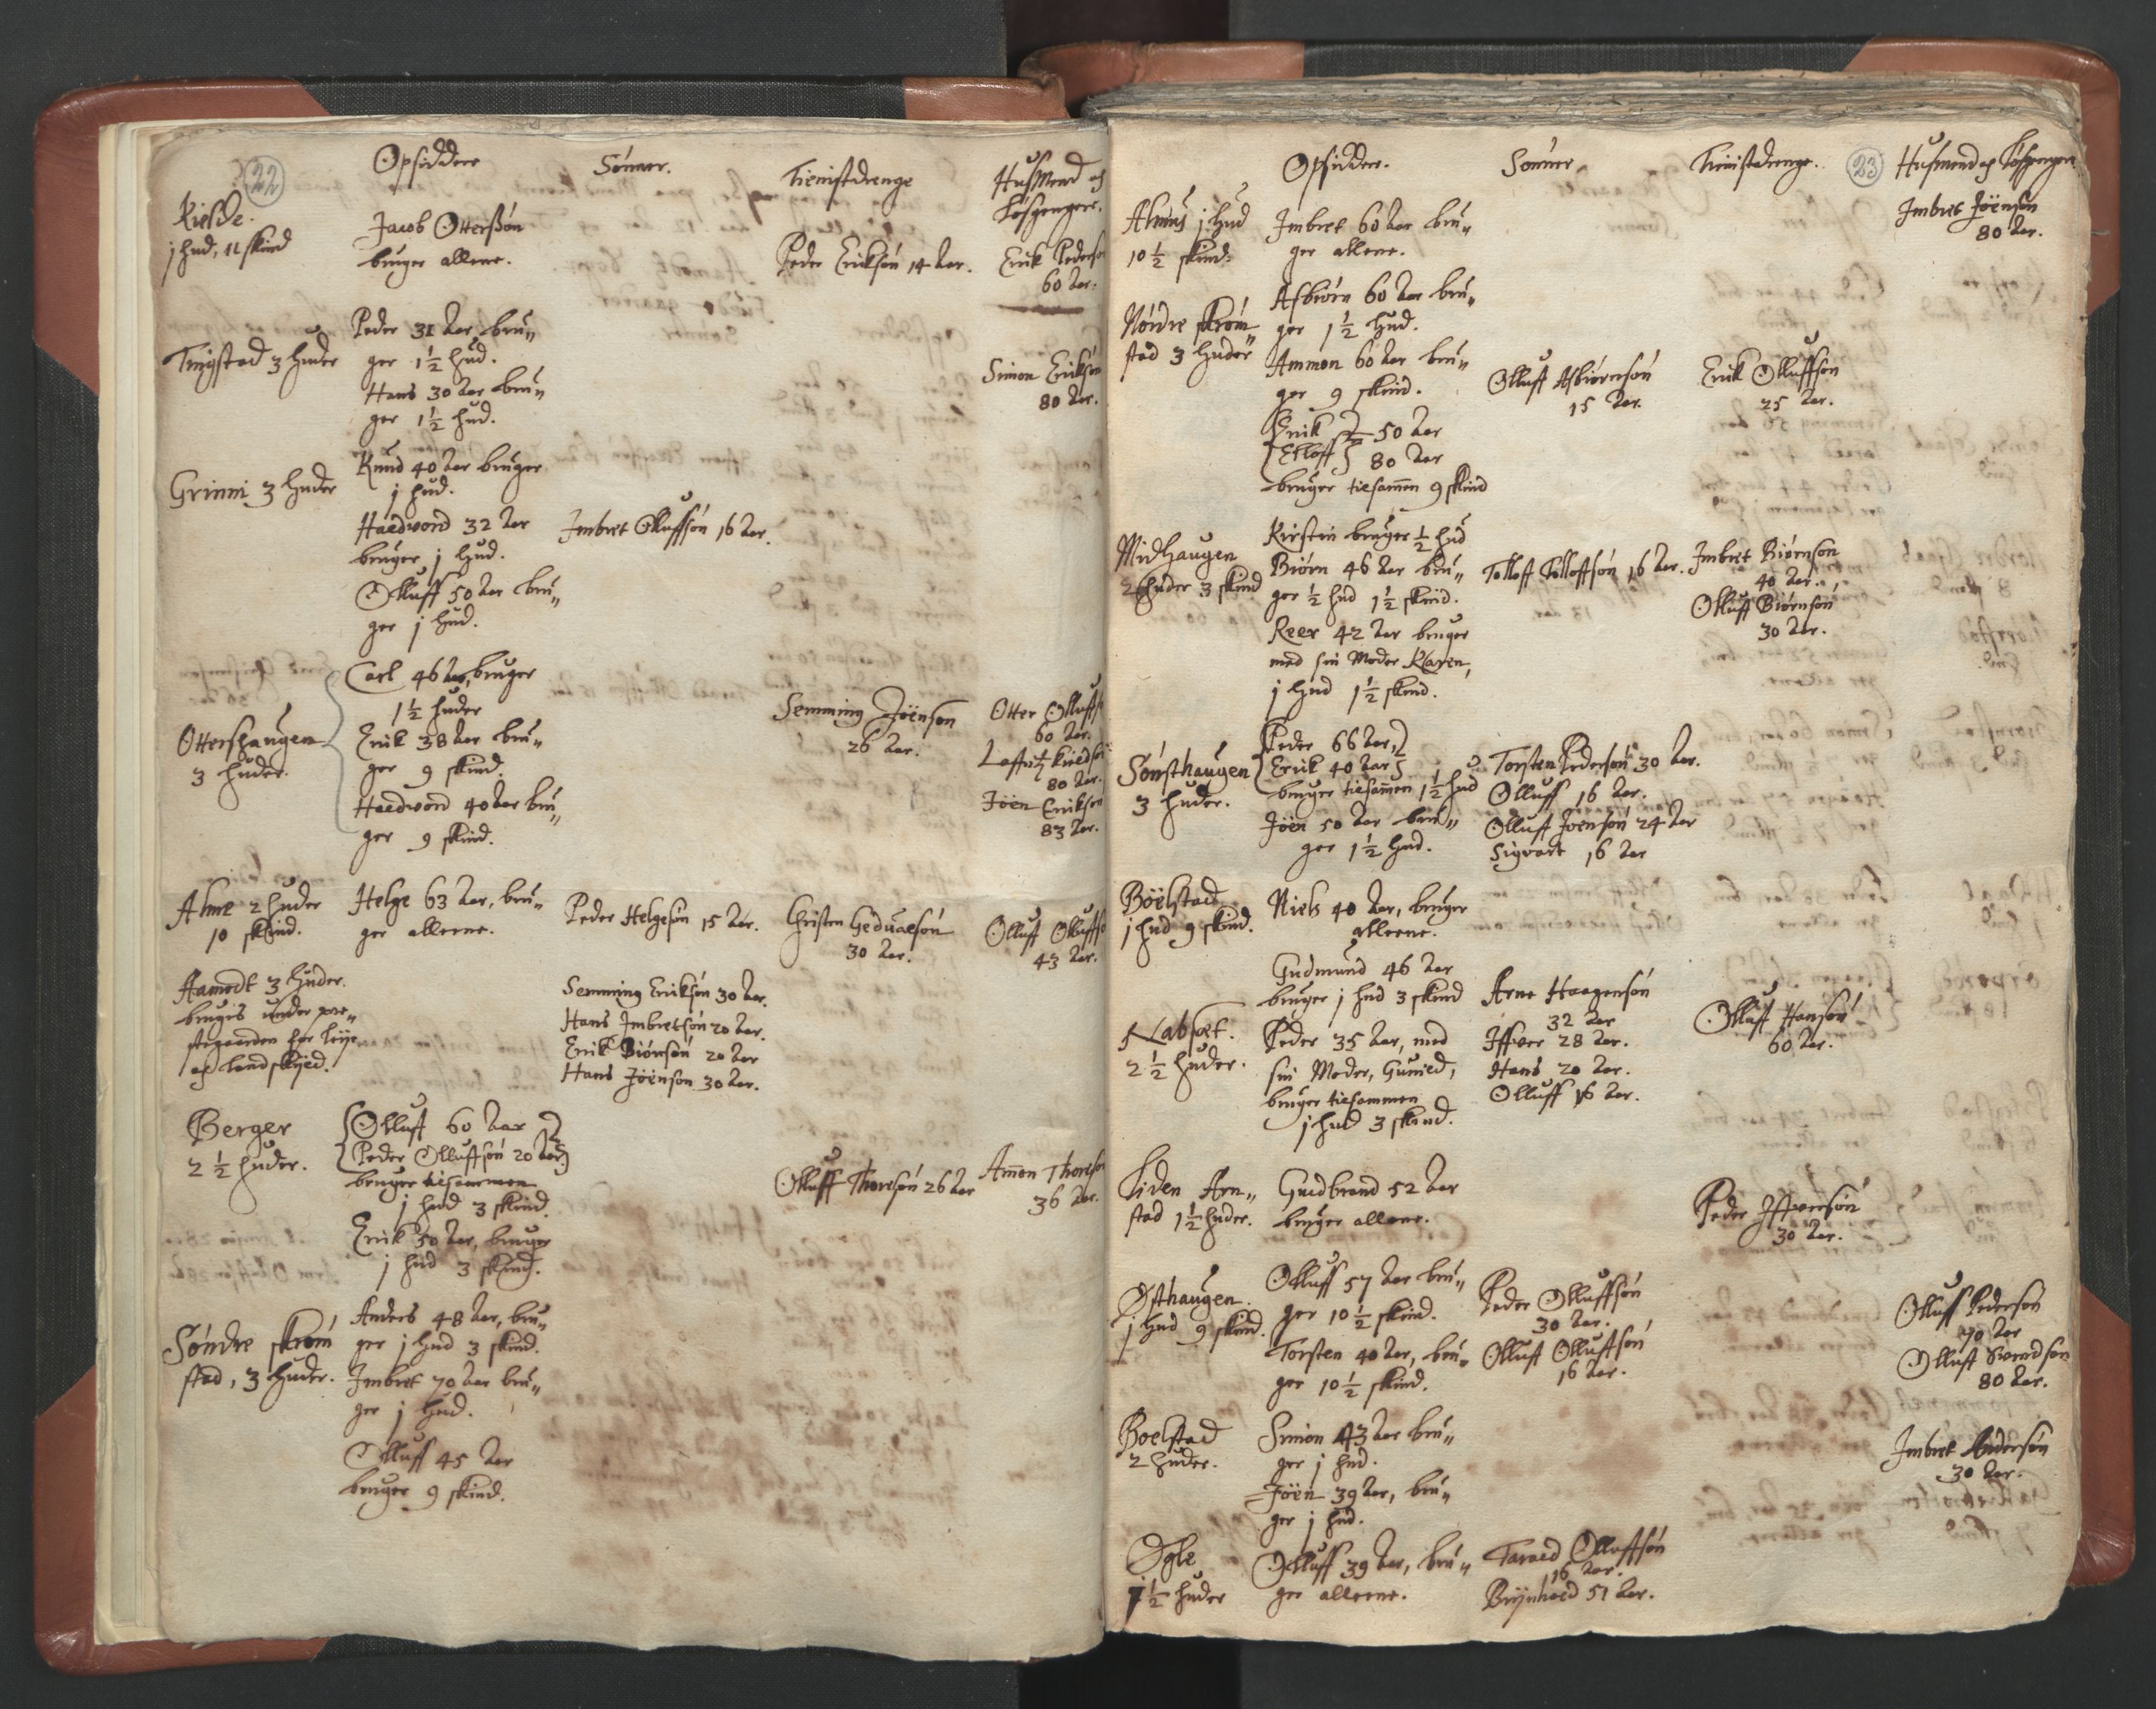 22
Opsidder
Sönner.
Tienistdrenge
HusMend och
Lösgengere.
Kielde.
j hud, 11 skind
Jacob Otterßön
bruger allene.
Peder Eriksön 14 Aar.
Erik Pederso
60 Aar.
Tingstad 3 huder
Peder 31 Aar bru„
ger 1½ hud.
Hans 30 Aar bru„
ger 1½ hud.
Simon Eriksön
80 Aar.
Grinni 3 huder
Knud 40 Aar bruger
j hud.
Haedword 32 Aar
bruger j hud.
Olluff 50 Aar bru„
ger j hud.
Imbret Olluffsön 16 Aar.
Ottershaugen
3 huder.
Carl 46 Aar, bruger
1½ huder
Erik 38 Aar bru„
ger 9 skind.
Haedword 40 Aar bru„
ger 9 skind.
Semming Jöenson
26 Aar.
Otter Olluffs
60 Aar.
80 Aar.
Jöen Erikson
83 Aar.
Alme 2 huder
10 skind.
Helge 63 Aar, bru„
ger allene.
Peder Helgesön 15 Aar.
Christen Gedualsön
30 Aar.
Olluff Olluffsö
43 Aar.
Aamodt 3 huder.
brugis under pre„
stegaarden for leije
och landskyed.
Semming Eriksön 30 Aar.
Hans Imbretsön 20 Aar.
Erik Biörnsön 20 Aar
Hans Jöenson 30 Aar.
Berger
2½ huder.
Olluff 60 Aar
Peder Olluffsön 20 Aar
bruger tilsammen
j hud 3 skind.
Erik 50 Aar, bruger
j hud 3 skind.
Olluff Thoresön 26 Aar
Amon Thoreson
36 Aar.
Söndre Skröm
stad, 3 huder.
Anders 48 Aar, bru„
ger j hud 3 skind.
Imbret 70 Aar bru„
ger j hud.
Olluff 45 Aar
bruger 9 skind.
Opsidder.
Sönner
Tienistdrenge.
23
Husmend och Lösgengere
Almüs j hud
10½ skind.
Imbret 60 Aar bru„
ger allene.
Imbret Jöenson
80 Aar.
Nördre Skröm„
stad 3 huder
Asbiörn 60 Aar bru„
ger 1½ hud.
Ammon 60 Aar bru„
ger 9 skind.
Erik 50 Aar
Elloff 80 Aar
bruger tilsamen 9 skind
Olluff Asbiörnsön
15 Aar.
Erik Olluffsön
25 Aar.
Midhaugen
2 huder 3 skind
Kirstin bruger ½ hud
Biörn 46 Aar bru„
ger ½ hud 1½ skind.
Reer 42 Aar bruger
med sin Moder Karen,
j hud 1½ skind.
Tolloff Tolloffsön 16 Aar.
Imbret Biörnson
40 Aar.
Olluff Biörnsön
30 Aar.
Sönsthaugen
3 huder.
Peder 66 Aar,
Erik 40 Aar
bruger tilsamen 1½ hud
Jöen 50 Aar bru„
ger 1½ hud.
Torsten Pedersön 30 Aar.
Olluff 16 Aar.
Olluff Joensön 24 Aar
Sigvart 16 Aar
Böelstad
j hud 9 skind.
Niels 40 Aar, bruger
allene.
Nabset.
2½ huder.
Gudmund 46 Aar
bruger j hud 3 skind
Peder 35 Aar, med
sin Moder, Gunild,
bruger tilsammen
j hud 3 skind.
Arne Haagensön
32 Aar
Iffuer 28 Aar.
Hans 20 Aar.
Olluff 16 Aar.
Olluff Hansön
60 Aar.
Liden Arn„
stad 1½ huder.
Gudbrand 52 Aar
bruger allene.
Peder Iffuersön
30 Aar.
Östhaugen.
j hud 9 skind.
Olluff 57 Aar bru„
ger 10½ skind.
Torsten 40 Aar, bru„
ger 10½ skind.
Peder Olluffsön
30 Aar.
Olluff Olluffsön
16 Aar.
Olluff Pederson
70 Aar
Olluff Svendsön
80 Aar.
Boelstad
2 huder.
Simon 43 Aar bru„
ger j hud.
Jöen 39 Aar, bru„
ger j hud.
Imbret Andersön
30 Aar.
Ögle
1½ huder
Olluff 39 Aar, bru„
ger allene.
Tarald Olluffsön
16 Aar.
Brÿnhild 51 Aar.